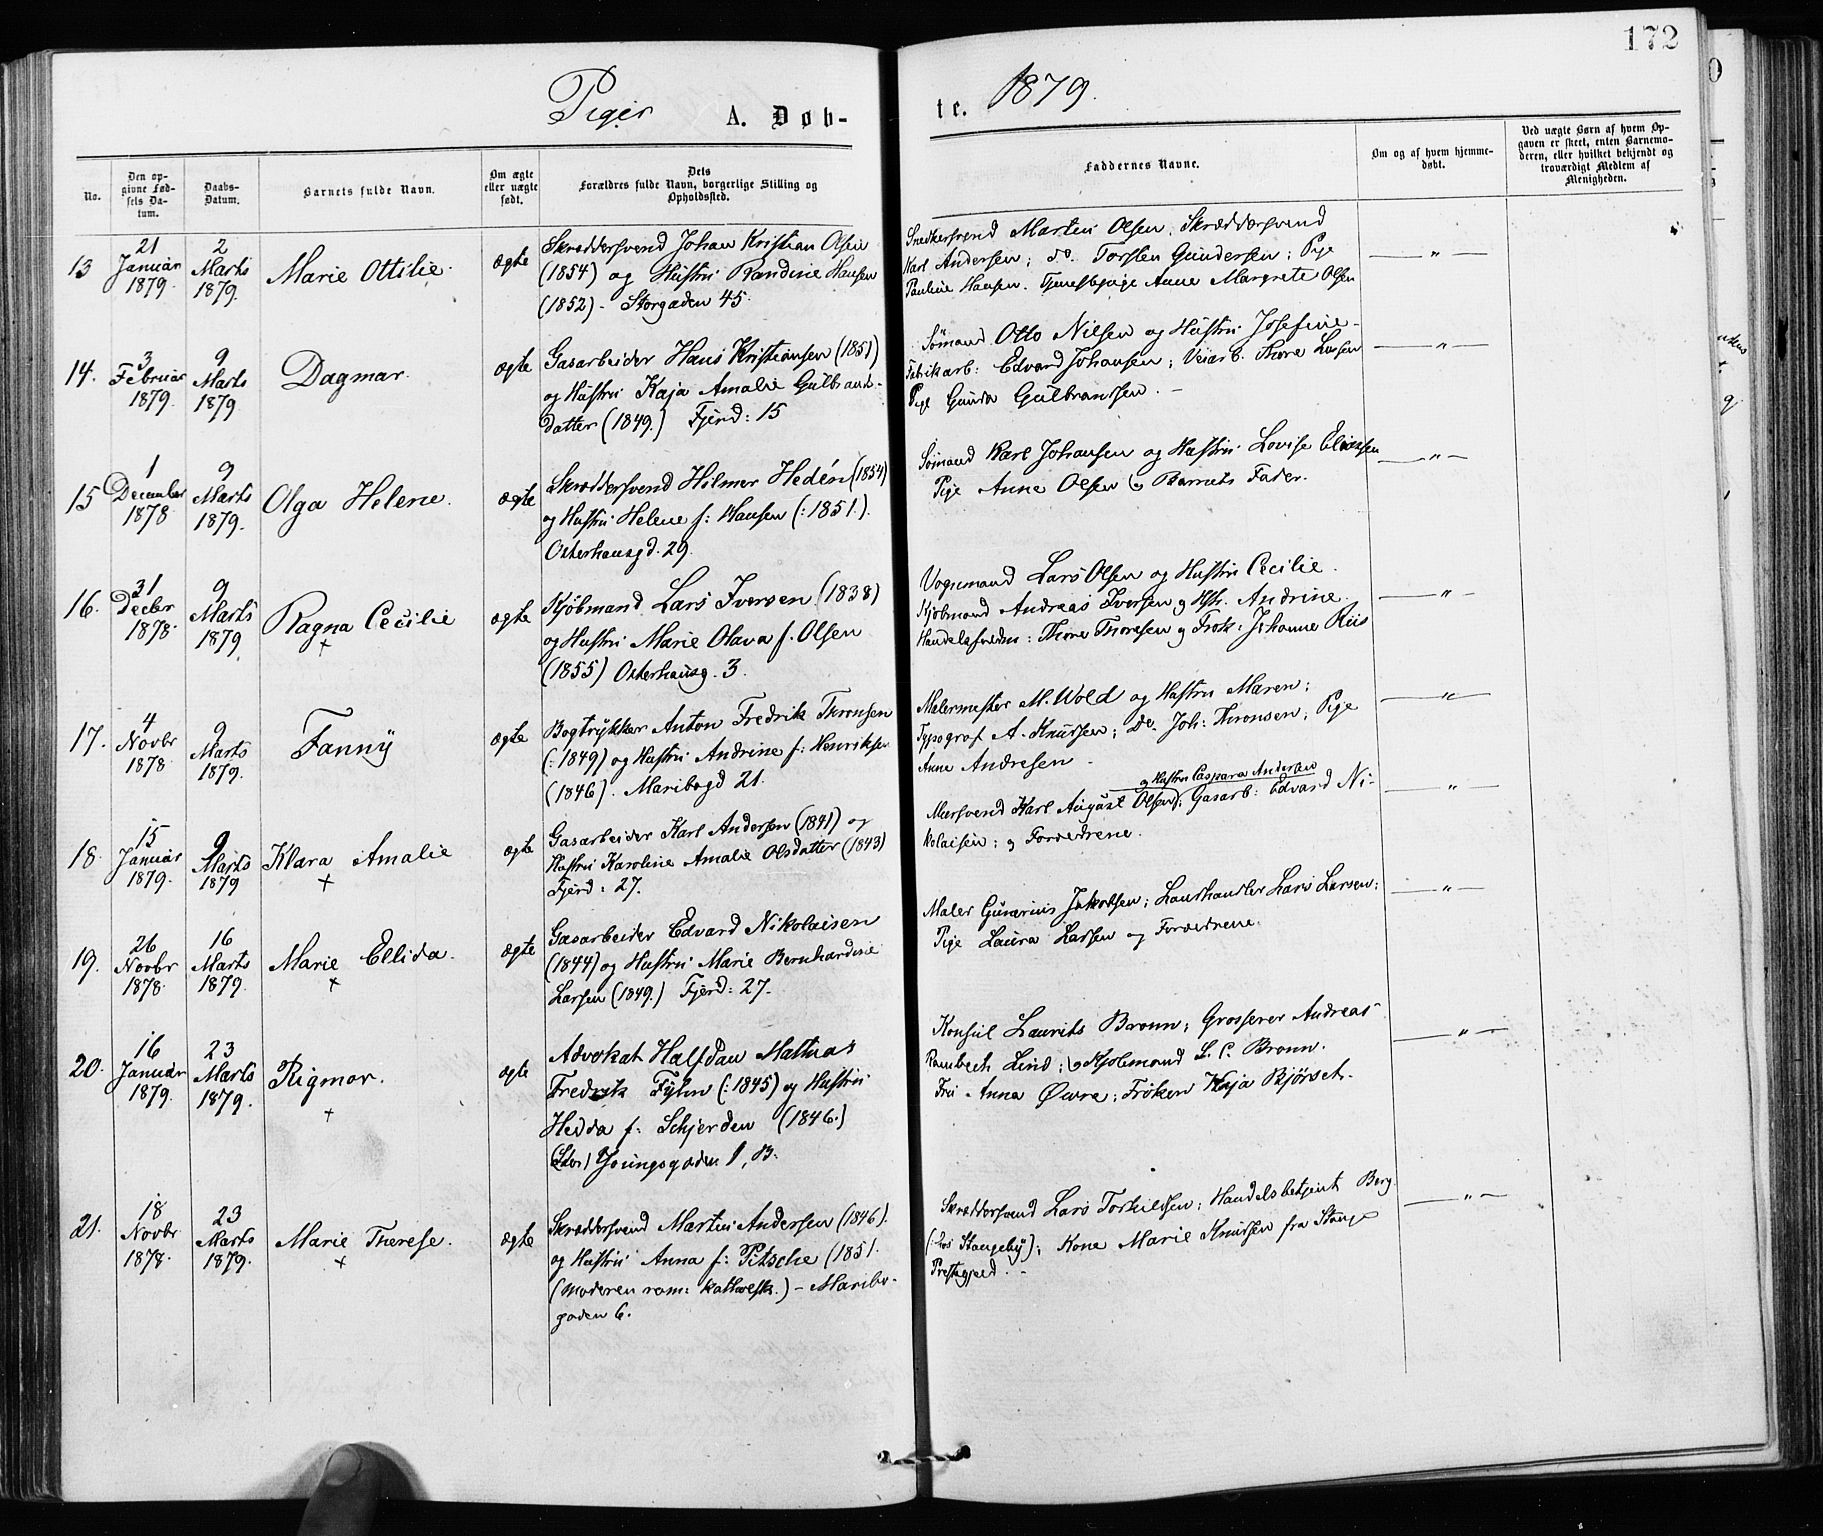 172
Piger A. Døb-
te. 1879.
No.
Den op-
givne Fød-
sels Da-
tum.
Daabs-
Datum.
Barnets fulde Navn.
Om ægte
eller uægte
født.
Dets
Forældres fulde Navn, borgerlige Stilling og
Opholdssted.
Faddernes Navne.
Om og af hvem hjemme-
døbt.
Ved uægte Børn af hvem Op-
gaven er skeet, enten Barnemo-
deren, eller hvilket bekjendt og
troværdigt Medlem af
Menigheden.
13
21
Januar
1879.
2
Marts
1879.
Marie Ottilie.
ægte
Skræddersvend Johan Kristian Olsen
(1854) og Hustru Randine Hansen
(1852) - Storgaden 45.
Snedkersvend Martin Olsen; Skræddersvend
Karl Andersen; do. Torsten Gundersen; Pige
Pauline Hansen. Tjenestepige Anne Margrete Olsen
— " —
14.
3
Februar
1879.
9
Marts
1879
Dagmar.
ægte
Gasarbeider Hans Kristiansen (1851)
og Hustru Kaja Amalie Gulbrands-
datter (1849.) Fjerd: 15
Sømand Otto Nilsen og Hustru Josefine -
Fabrikarb: Edvard Johansen; Veiarb. Thore Larsen
Pige Gunda Gulbransen. -
— " —
15
1
December
1878
9
Marts
1879.
Olga Helene.
ægte
Skræddersvend Hilmer Hedén (1854)
og Hustru Helene f: Hansen (: 1851.).
Osterhausgd. 29.
Sømand Karl Johansen og Hustru Lovise Eliassen
Pige Anne Olsen og Barnets Fader.
— " —
16.
31
Decbr
1878.
9
Marts
1879.
Ragna Cecilie
+
ægte
Kjøbmand Lars Iversen (1838)
og Hustru Marie Olava f. Olsen
(1855) Osterhausg. 3.
Vognmand Lars Olsen og Hustru Cecilie.
Kjøbmand Andreas Iversen og Hstr. Andrine.
Thore Thoresen og Frøk: Johanne Riis
— " —
17.
4
Novbr
1878
9
Marts
1879.
Fanny
ægte
Bogtrykker Anton Fredrik Thronsen
(: 1849) og Hustru Andrine f: Henriksen
(1846). Maribogd 21.
Malermester M. Wold og Hustru Maren;
Typograf A. Knudsen; Do. Joh: Thronsen; Pige
Anne Andresen -
— " —
18.
15
Januar
1879.
9
Marts
1879
Klara Amalie
+
ægte
Gasarbeider Karl Andersen (1841) og
Hustru Karoline Amalie Olsdatter (1843)
Fjerd: 27.
og Hustru Caspara Andersen
Mursvend Karl August Olsen; Gasarb: Edvard Ni-
kolaisen; og Forældrene.
— " —
19.
26
Novbr
1878.
16
Marts
1879.
Marie Ellida.
+
ægte
Gasarbeider Edvard Nikolaisen
(1844) og Hustru Marie Bernhardine
Larsen (1849.) Fjerd: 27.
Maler Gunerius Jakobsen; Landhandler Lars Larsen;
Pige Laura Larsen og Forældrene.
— " —
20.
16
Januar
1879.
23
Marts
1879.
Rigmor.
+
ægte
Advokat Halfdan Mathias
Fredrik (: 1845) og Hustru
Hedda f: Schjerden (1846.)
Youngsgaden 1, B.
Konsul Laurits Bronn; Grosserer Andreas
Rambech Lind; Kjøbmand L. C. Bronn.
Fru Anna Øvre; Frøken Kaja Bjørset.
— " —
21.
18
Novbr
1878.
23
Marts
1879.
Marie Therese.
+
ægte
Skræddersvend Martin Andersen (1846).
og Hustru Anna f: Pitsche (1851.
(Moderen rom: katholsk.) - Maribo-
gaden 6.
Skræddersvend Lars Torkildsen; Handelsbetjent Berg
(: hos Stangeby); Kone Marie Knudsen fra Stange
Prestegjeld. -
— " —